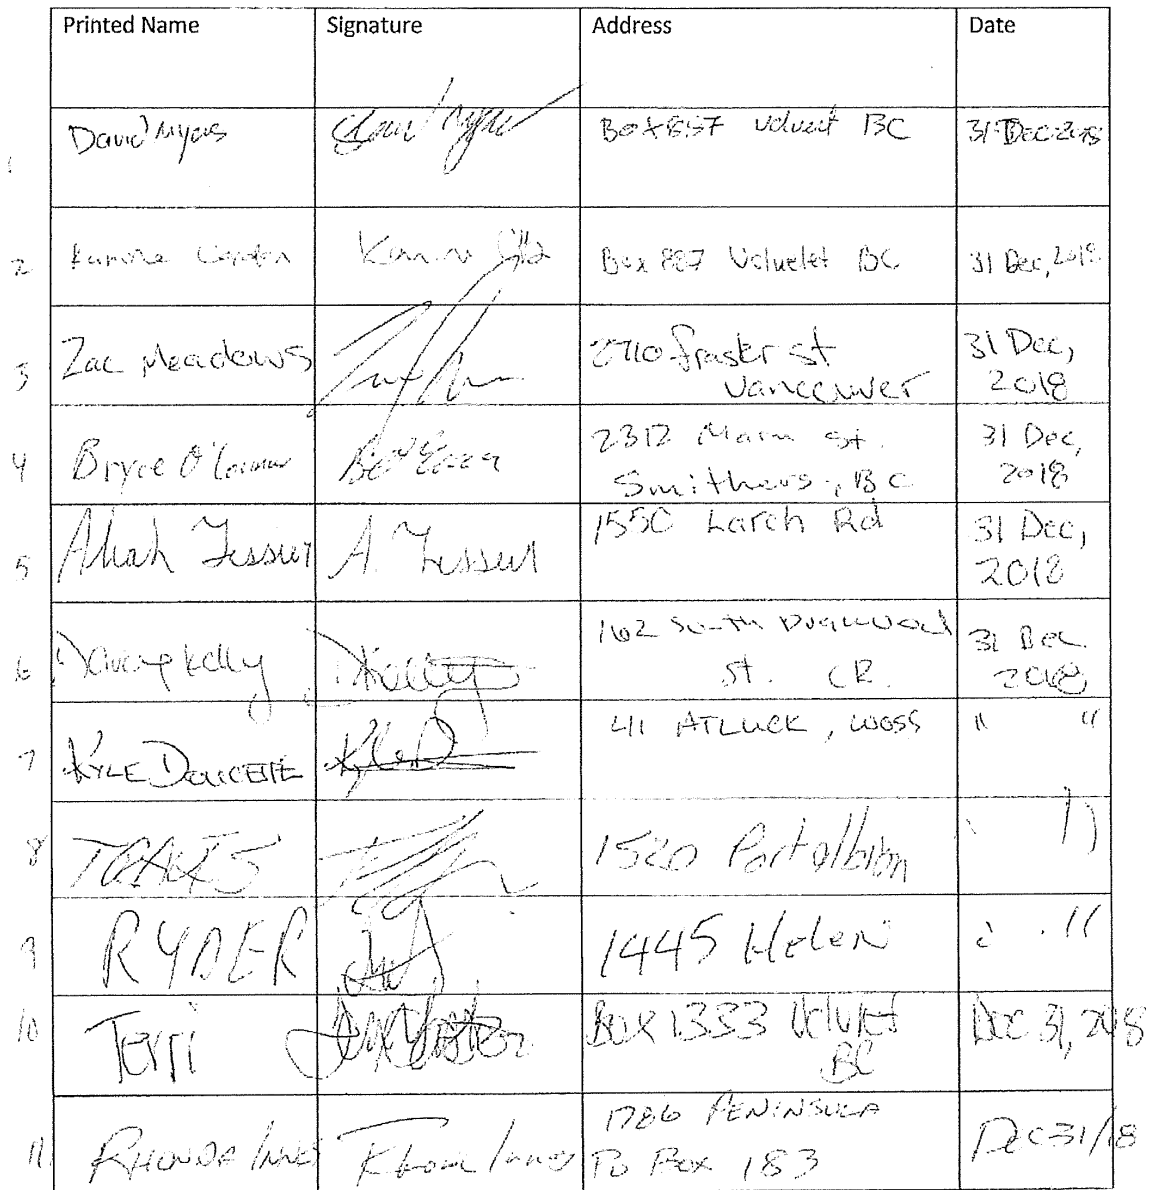 Printed Name Signature Address Date
1 David Myers Box 887 Ucluelet BC 31 Dec 2018
2 Box 887 Ucluelet BC 31 Dec, 2018
3 Zac Meadows 2710 fraser st
Vancouver
31 Dec,
2018
4 Bryce O'Connor 2312 Main st.
Smithers, BC
31 Dec,
2018
5 Tessier A. Tessier 1550 Larch Rd
31 Dec,
2018
6 Kelly 162 South Dogwood
st. CR.
31 Dec
2018
7 KYLE DOUCETTE Kyle D 41 ATLUCK, WOSS " "
8 1520 Port albion "
9 RYDER 1445 Helen "
10 Terri Box 1333 Ucluelet
BC
Dec 31, 2018
11 RHONDA INNES Innes 1786 PENINSULA
PO Box 183
Dec 31/18